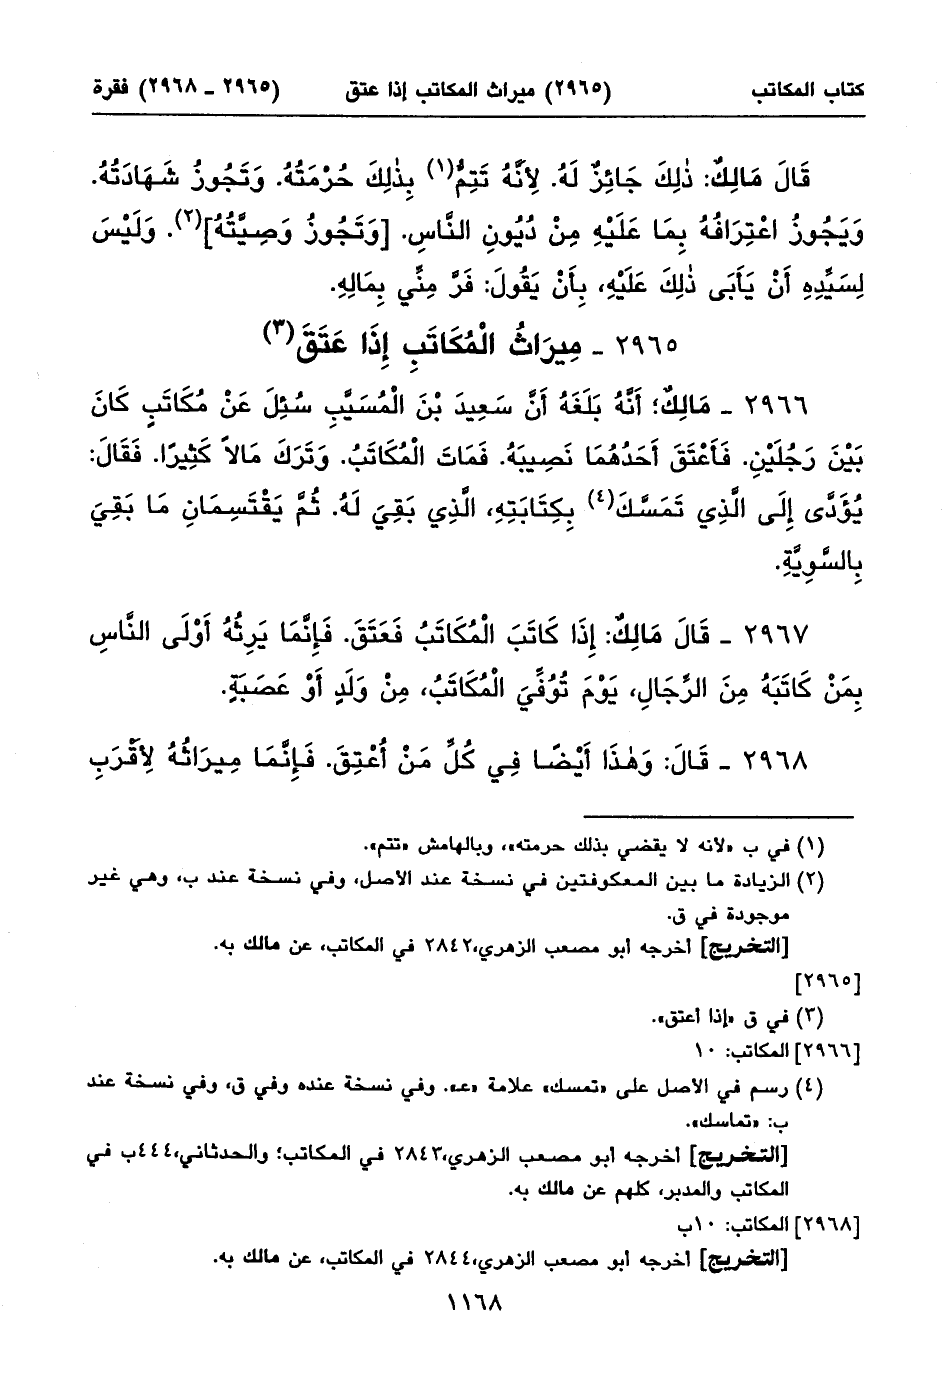 كتاب المكاتب (٢٩٦٥) ميراث المكاتب إذا عتق (٢٩٦٥ - ٢٩٦٨) فقرة
قَالَ مَالِكٌ: ذٰلِكَ جَائِزٌ لَهُ. لِأَنَّهُ تَتِمُّ(١) بِذٰلِكَ حُرْمَتُهُ. وَتَجُوزُ شَهَادَتُهُ.
وَيَجُوزُ اعْتِرَافُهُ بِمَا عَلَيْهِ مِنْ دُيُونِ النَّاسِ. [وَتَجُوزُ وَصِيَّتُهُ](٢). وَلَيْسَ
لِسَيِّدِهِ أَنْ يَأْبَى ذٰلِكَ عَلَيْهِ، بِأَنْ يَقُولَ: فَرَّ مِنِّي بِمَالِهِ.
٢٩٦٥ - مِيرَاثُ الْمُكَاتَبِ إِذَا عَتَقَ(٣)
٢٩٦٦ - مَالِكٌ؛ أَنَّهُ بَلَغَهُ أَنَّ سَعِيدَ بْنَ الْمُسَيَّبِ سُئِلَ عَنْ مُكَاتَبٍ كَانَ
بَيْنَ رَجُلَيْنِ. فَأَعْتَقَ أَحَدُهُمَا نَصِيبَهُ. فَمَاتَ الْمُكَاتَبُ. وَتَرَكَ مَالاً كَثِيرًا. فَقَالَ:
يُؤَدَّى إِلَى الَّذِي تَمَسَّكَ(٤) بِكِتَابَتِهِ، الَّذِي بَقِيَ لَهُ. ثُمَّ يَقْتَسِمَانِ مَا بَقِيَ
بِالسَّوِيَّةِ.
٢٩٦٧ - قَالَ مَالِكٌ: إِذَا كَاتَبَ الْمُكَاتَبُ فَعَتَقَ. فَإِنَّمَا يَرِثُهُ أَوْلَى النَّاسِ
بِمَنْ كَاتَبَهُ مِنَ الرِّجَالِ، يَوْمَ تُوُفِّيَ الْمُكَاتَبُ، مِنْ وَلَدٍ أَوْ عَصَبَةٍ.
٢٩٦٨ - قَالَ: وَهٰذَا أَيْضًا فِي كُلِّ مَنْ أُعْتِقَ. فَإِنَّمَا مِيرَاثُهُ لِأَقْرَبِ
(١) في ب «لأنه لا يقضي بذلك حرمته»، وبالهامش «تتم».
(٢) الزيادة ما بين المعكوفتين في نسخة عند الأصل، وفي نسخة عند ب، وهي غير
موجودة في ق.
[التخريج] أخرجه أبو مصعب الزهري، ٢٨٤٢ في المكاتب، عن مالك به.
[٢٩٦٥]
(٣) في ق «إذا أعتق».
[٢٩٦٦] المكاتب: ١٠
(٤) رسم في الأصل على «تمسك» علامة «عـ». وفي نسخة عنده وفي ق، وفي نسخة عند
ب: «تماسك».
[التخريج] أخرجه أبو مصعب الزهري، ٢٨٤٣ في المكاتب؛ والحدثاني، ٤٤٤ب في
المكاتب والمدبر، كلهم عن مالك به.
[٢٩٦٨] المكاتب: ١٠ب
[التخريج] أخرجه أبو مصعب الزهري، ٢٨٤٤ في المكاتب، عن مالك به.
١١٦٨